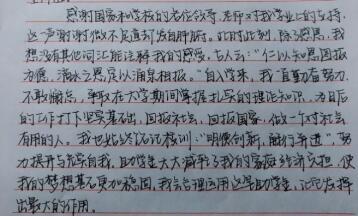 感谢国家和学校的各位领导,老师对我学业上的支持,
这一声谢谢微不足道却发自肺腑。此时此刻,除了感恩,我
想没有其他词汇能诠释我的感受。古人云:"仁以知恩图报
为德,滴水之恩定以涌泉相报。"自入学来,我一直勤奋努力,
不敢懈怠,争取在大学期间掌握扎实的理论知识,为日后
的工作打下坚实基础,回报社会,回报国家,做一个对社会
有用的人。我也始终铭记校训:"明德创新,励行弄道",努
力提升与完善自我。助学金大大减轻了我的家庭经济负担,使
我的梦想基石更加稳固,我会合理运用这笔助学金,让它发挥
出最大的作用。